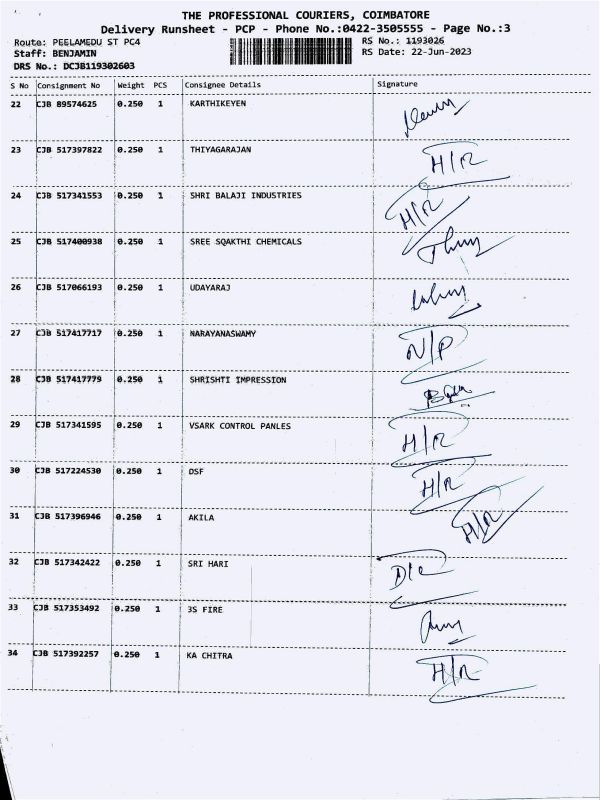 THE PROFESSIONAL COURIERS, COIMBATORE
Delivery Runsheet - PCP - Phone No.:0422-3505555 - Page No.:3
Route: PEELAMEDU ST PC4 RS No.: 1193026
Staff: BENJAMIN RS Date: 22-Jun-2023
DRS No.: DCJB119302603
S No Consignment No Weight PCS Consignee Details Signature
22 CJB 89574625 0.250 1 KARTHIKEYEN
23 CJB 517397822 0.250 1 THIYAGARAJAN H/R
24 CJB 517341553 0.250 1 SHRI BALAJI INDUSTRIES H/R
25 CJB 517400938 0.250 1 SREE SQAKTHI CHEMICALS
26 CJB 517066193 0.250 1 UDAYARAJ
27 CJB 517417717 0.250 1 NARAYANASWAMY N/P
28 CJB 517417779 0.250 1 SHRISHTI IMPRESSION
29 CJB 517341595 0.250 1 VSARK CONTROL PANLES H/R
30 CJB 517224530 0.250 1 DSF H/R
31 CJB 517396946 0.250 1 AKILA H/R
32 CJB 517342422 0.250 1 SRI HARI
33 CJB 517353492 0.250 1 3S FIRE
34 CJB 517392257 0.250 1 KA CHITRA H/R